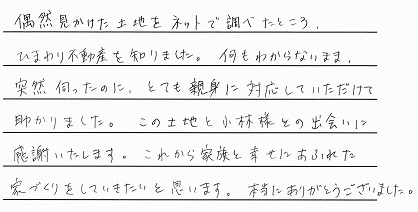 偶然見かけた土地をネットで調べたところ、
ひまわり不動産を知りました。何もわからないまま、
突然伺ったのに、とても親身に対応していただけて
助かりました。この土地と小林様との出会いに
感謝いたします。これから家族と幸せにあふれた
家づくりをしていきたいと思います。本当にありがとうございました。